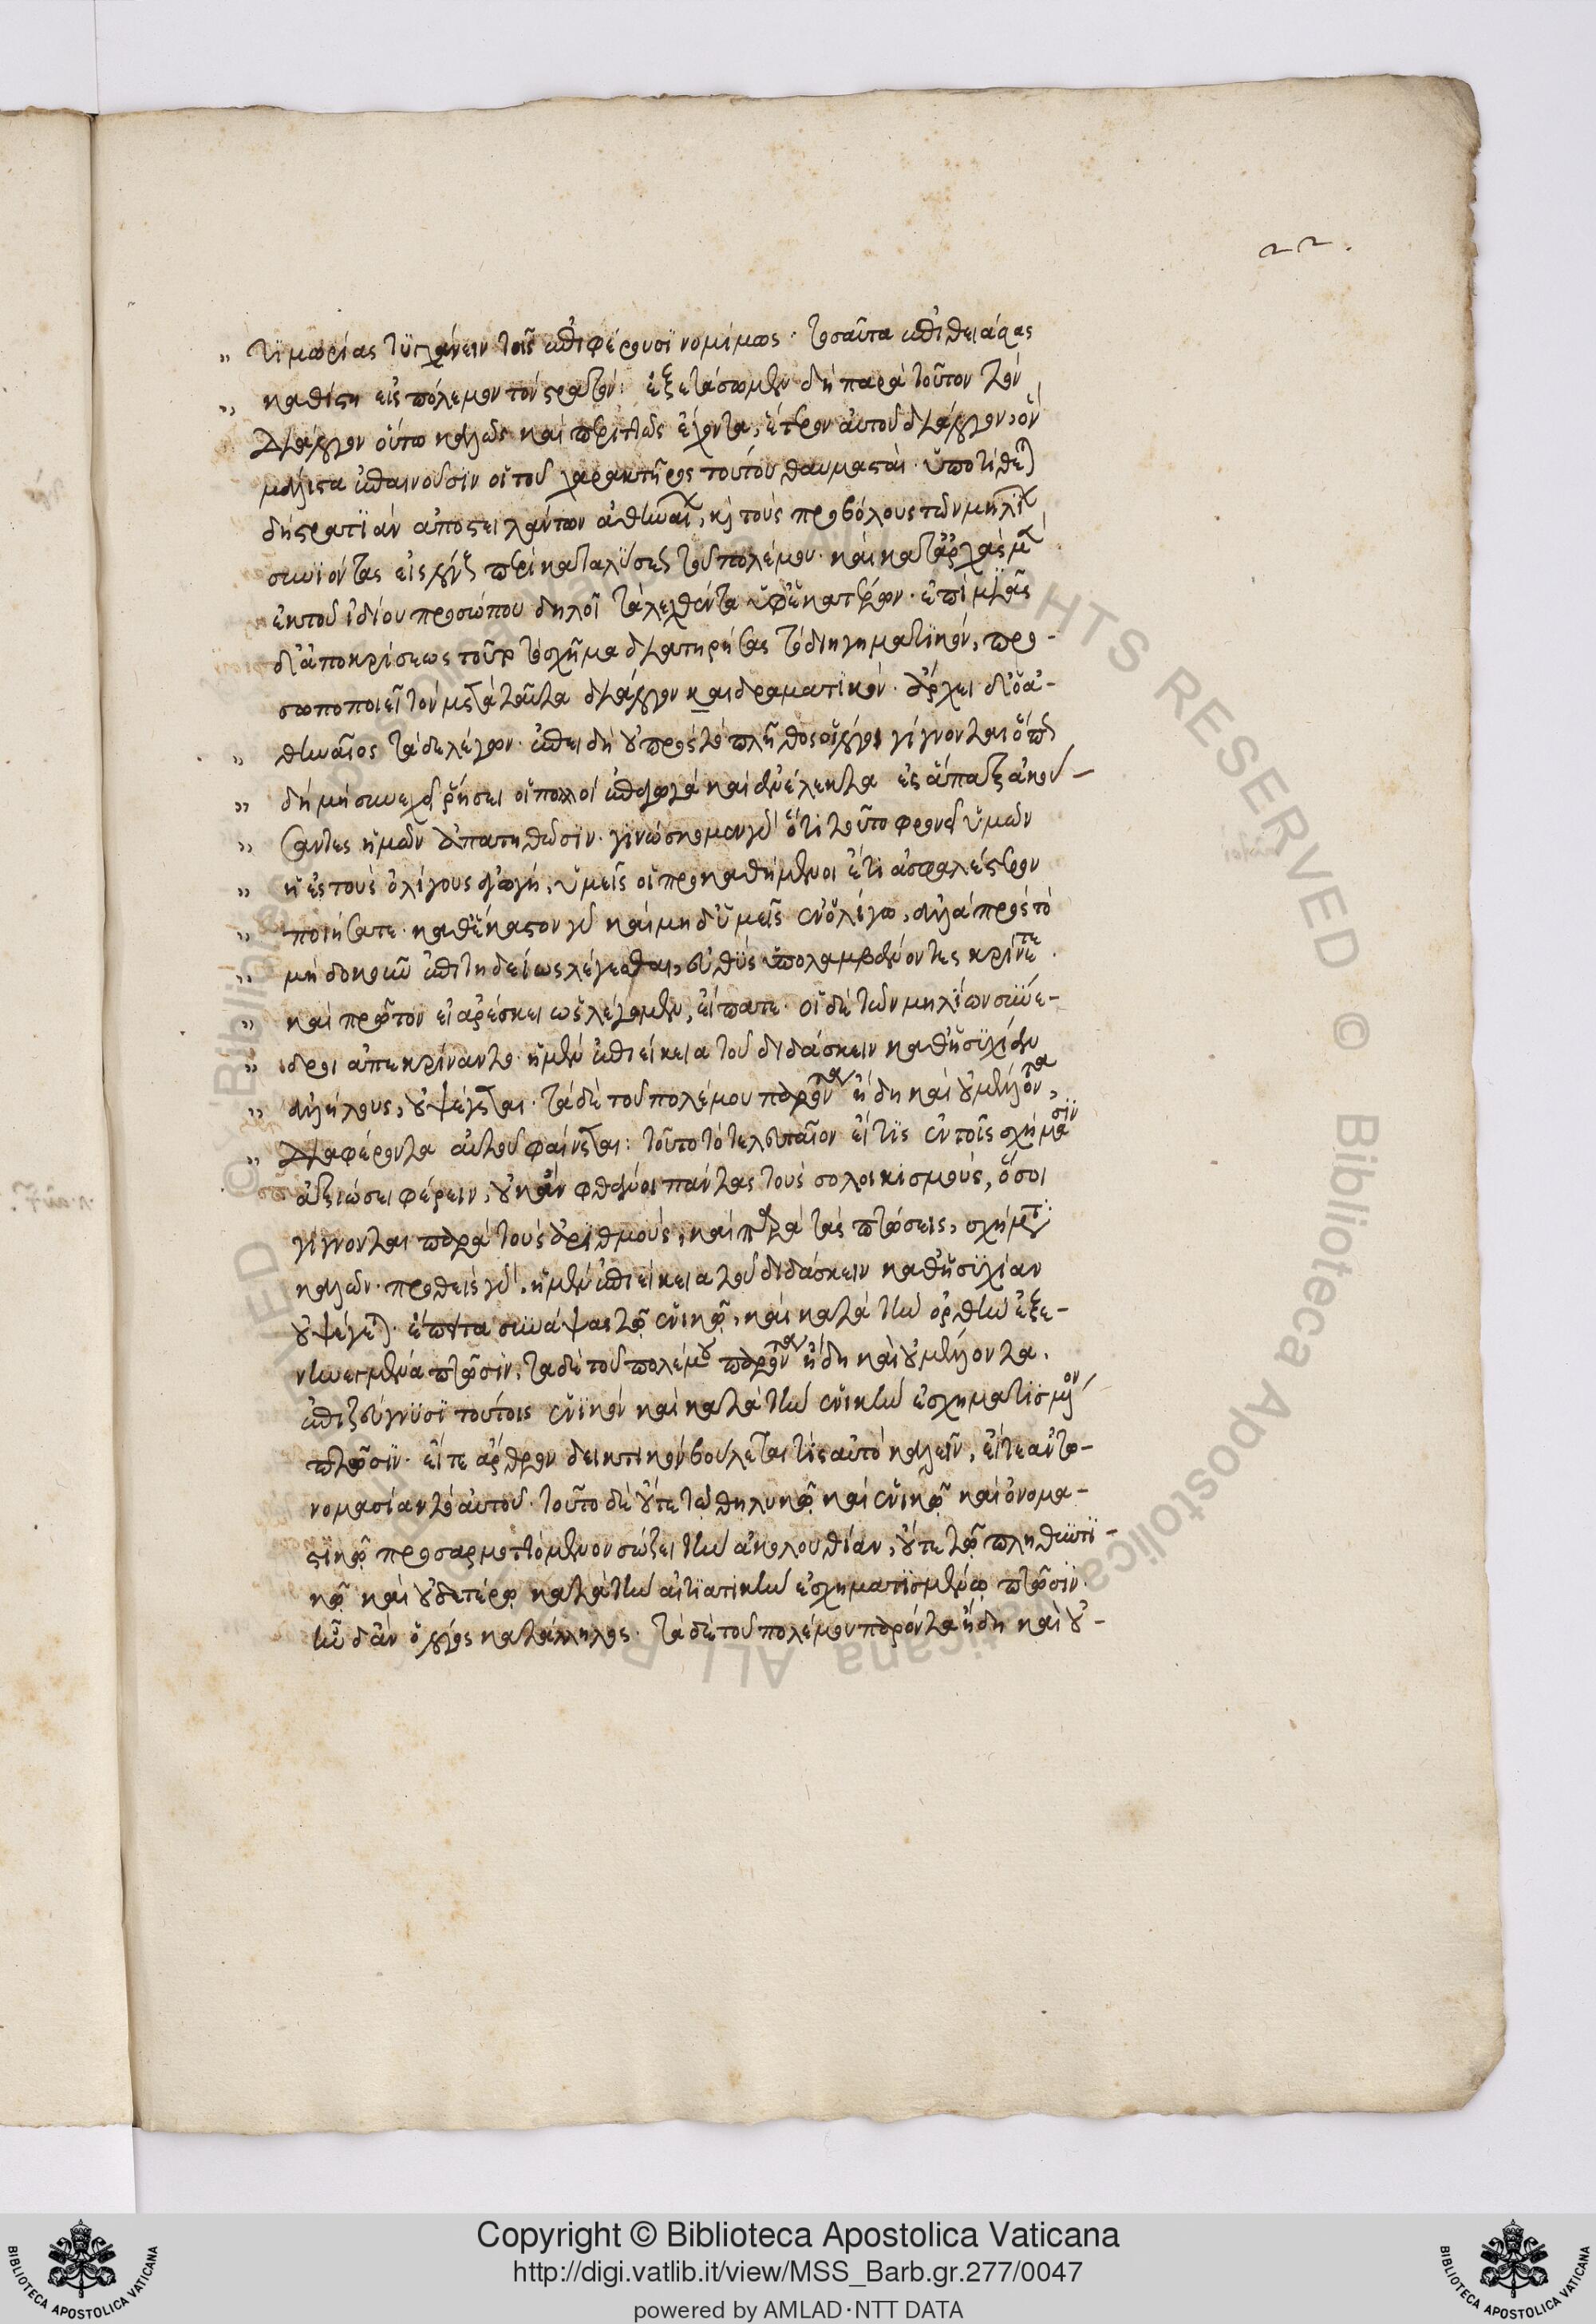 22.
" τιμωρίας τυγχάνειν τοῖς ἐπιφέρουσι νομίμως· τοσαῦτα ἐπιθειάσας
" καθίστη εἰς πόλεμον τὸν στρατόν: ἐξετάσωμεν δὴ παρὰ τοῦτον τὸν
διάλογον οὕτω καλῶς καὶ περιττῶς ἔχοντα, ἕτερον αὐτοῦ διάλογον, ὃν
μάλιστα ἐπαινοῦσιν οἱ τοῦ χαρακτῆρος τούτου θαυμασταί. ὑποτίθεται
δὴ στρατιὰν ἀποστειλάντων ἀθηναίων, καὶ τοὺς προβόλους τῶν μηλίων
συνιόντας εἰς λόγους περὶ καταλύσεως τοῦ πολέμου. καὶ κατ' ἀρχὰς μὲν
ἐκ τοῦ ἰδίου προσώπου δηλοῖ τὰ λεχθέντα ὑφ' ἑκατέρων. ἐπὶ μιᾶς
δ' ἀποκρίσεως τοῦτο τὸ σχῆμα διατηρήσας τὸ διηγηματικόν, προ-
σωποποιεῖ τὸν μετὰ ταῦτα διάλογον καὶ δραματικόν. ἄρχει δ' ὁ ἀ-
" θηναῖος τάδε λέγων. ἐπειδὴ οὐ πρὸς τὸ πλῆθος οἱ λόγοι γίγνονται ὅπως
" δὴ μὴ συνεχεῖ ῥήσει οἱ πολλοὶ ἐπαγωγὰ καὶ ἀνέλεγκτα ἐς ἅπαξ ἀκού-
" σαντες ἡμῶν ἀπατηθῶσιν. γινώσκομεν γὰρ ὅτι τοῦτο φρονεῖ ὑμῶν
" ἡ ἐς τοὺς ὀλίγους ἀγωγή, ὑμεῖς οἱ προκαθήμενοι ἔτι ἀσφαλέστερον
" ποιήσατε. καθ' ἕκαστον γὰρ καὶ μηδ' ὑμεῖς ἑνὶ λόγω, ἀλλὰ πρὸς τὸ
" μὴ δοκοῦν ἐπιτηδείως λέγεσθαι, εὐθὺς ὑπολαμβάνοντες κρίνετε.
" καὶ πρῶτον εἰ ἀρέσκει ὡς λέγομεν, εἴπατε. οἱ δὲ τῶν μηλίων σύνε-
" δροι ἀπεκρίναντο. ἡ μὲν ἐπιείκεια τοῦ διδάσκειν καθ' ἡσυχίαν
" ἀλλήλους, οὐ ψέγεται. τὰ δὲ τοῦ πολέμου παρόντα ἤδη καὶ οὐ μέλλοντα,
" διαφέροντα αὐτοῦ φαίνεται: τοῦτο τὸ τελευταῖον εἴ τις ἐν τοῖς σχήμασιν
ἀξιώσει φέρειν, οὐκ ἂν φθάνοι πάντας τοὺς σολοικισμούς, ὅσοι
γίγνονται παρὰ τοὺς ἀριθμούς, καὶ παρὰ τὰς πτώσεις, σχήματα
καλῶν. προθεὶς γάρ, ἡ μὲν ἐπιείκεια τοῦ διδάσκειν καθ' ἡσυχίαν
οὐ ψέγεται. ἔπειτα συνάψας τῷ ἑνικῷ, καὶ κατὰ τὴν ὀρθὴν ἐξε-
νηνεγμένα πτῶσιν, τὰ δὲ τοῦ πολέμου παρόντα ἤδη καὶ οὐ μέλλοντα.
ἐπιζεύγνυσι τούτοις ἑνικὸν καὶ κατὰ τὴν ἑνικὴν ἐσχηματισμένον
πτῶσιν. εἴτε ἄρθρον δεικτικὸν βούλεταί τις αὐτὸ καλεῖν, εἴτε ἀντω-
νομασίαν τὸ αὐτοῦ. τοῦτο δὲ οὔτε τῷ θηλυκῷ καὶ ἑνικῷ καὶ ὀνομα-
στικῷ προσαρμοττόμενον σώζει τὴν ἀκολουθίαν, οὔτε τῷ πληθυντι-
κῷ καὶ οὐδετέρῳ κατὰ τὴν αἰτιατικὴν ἐσχηματισμένῳ πτῶσιν.
ἦν δ' ἂν ὁ λόγος κατάλληλος. τὰ δὲ τοῦ πολέμου παρόντα ἤδη καὶ οὐ-
Copyright © Biblioteca Apostolica Vaticana
http://digi.vatlib.it/view/MSS_Barb.gr.277/0047
powered by AMLAD·NTT DATA